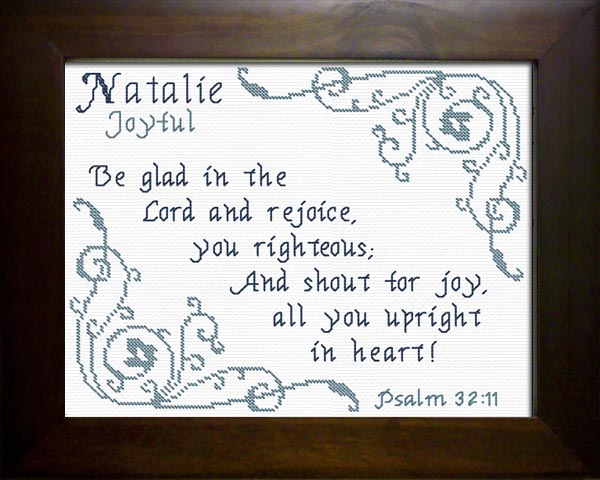 Natalie
Joyful
Be glad in the
Lord and rejoice,
you righteous;
And shout for joy,
all you upright
in heart!
Psalm 32:11